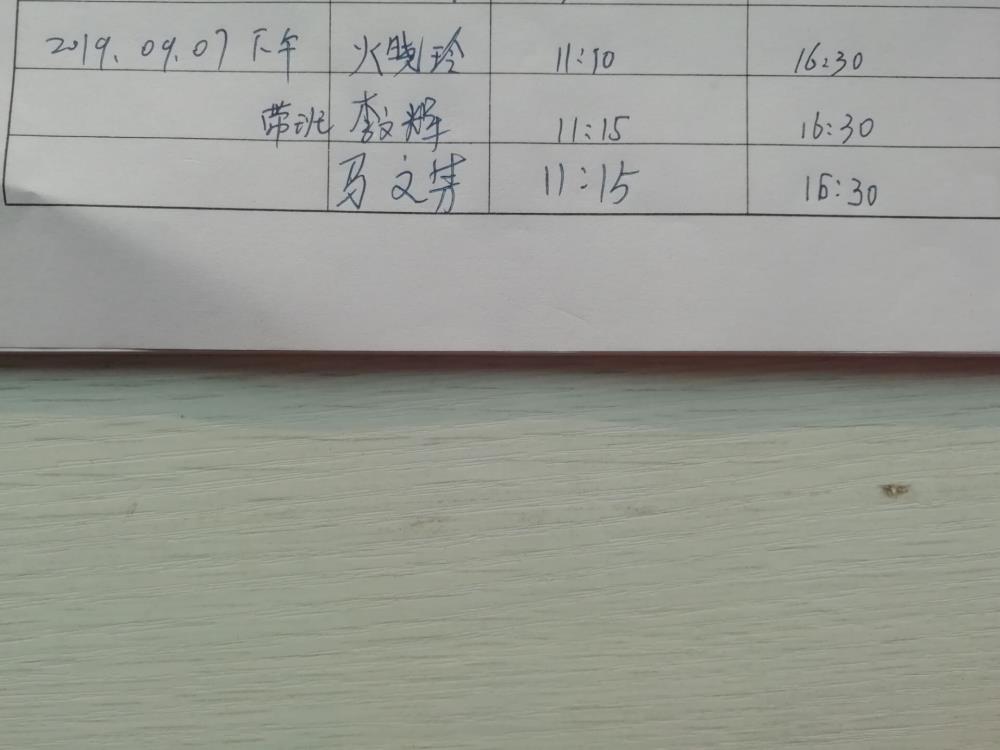 2019.09.07 下午 火晓玲 11:10 16:30
带班 李文辉 11:15 16:30
马文隽 11:15 16:30